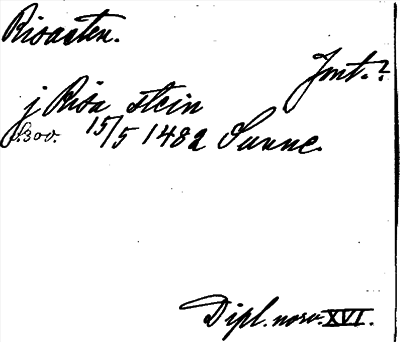 Risasten.
Jmt.?
j Risa stein
S.300. 15/5 1482 Sunne.
Dipl. norv. XVI.